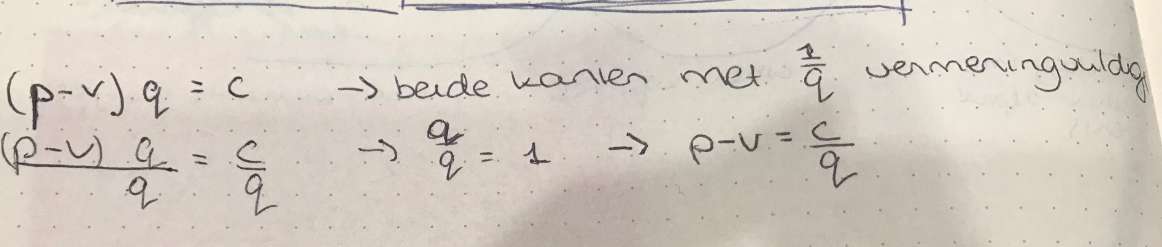 (p-v) · q = c → beide kanten met 1/q vermeningvuldig
(p-v) q / q = c/q → q/q = 1 → p-v = c/q